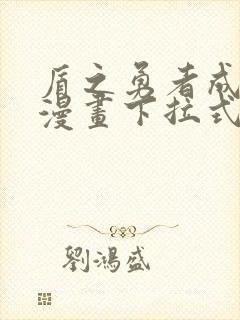 盾之勇者成
漫畫下拉式
劉鴻盛